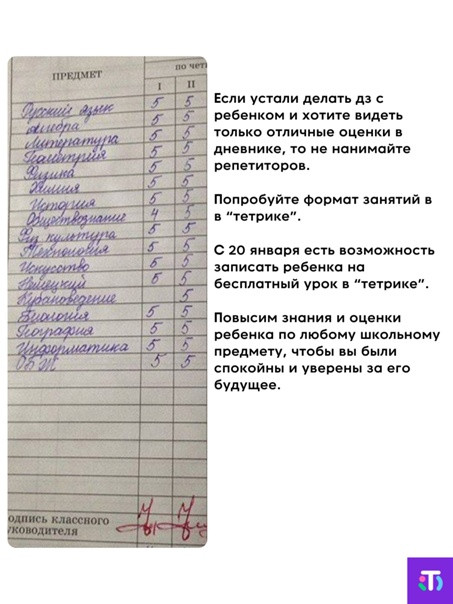 ПРЕДМЕТ
по чет
I II
Русский язык 5 5
Алгебра 5 5
Литература 5 5
Геометрия 5 5
Физика 5 5
Химия 5 5
История 5 5
Обществознание 4 5
Физ культура 5 5
Технология 5 5
Искусство 5 5
Немецкий 5 5
Кубановедение 5
Биология 5 5
География 5 5
Информатика 5 5
ОБЖ 5 5
одпись классного
уководителя
Если устали делать дз с
ребенком и хотите видеть
только отличные оценки в
дневнике, то не нанимайте
репетиторов.
Попробуйте формат занятий в
в “тетрике”.
С 20 января есть возможность
записать ребенка на
бесплатный урок в “тетрике”.
Повысим знания и оценки
ребенка по любому школьному
предмету, чтобы вы были
спокойны и уверены за его
будущее.